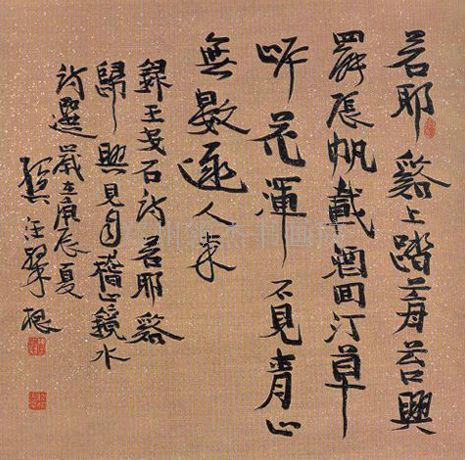 若耶谿上踏莓苔興
罷張帆載酒回汀草
岸花渾不見青山
無數逐人來
錄王安石詩若耶谿
歸興見自稽山鏡水
詩選歲在庚辰夏